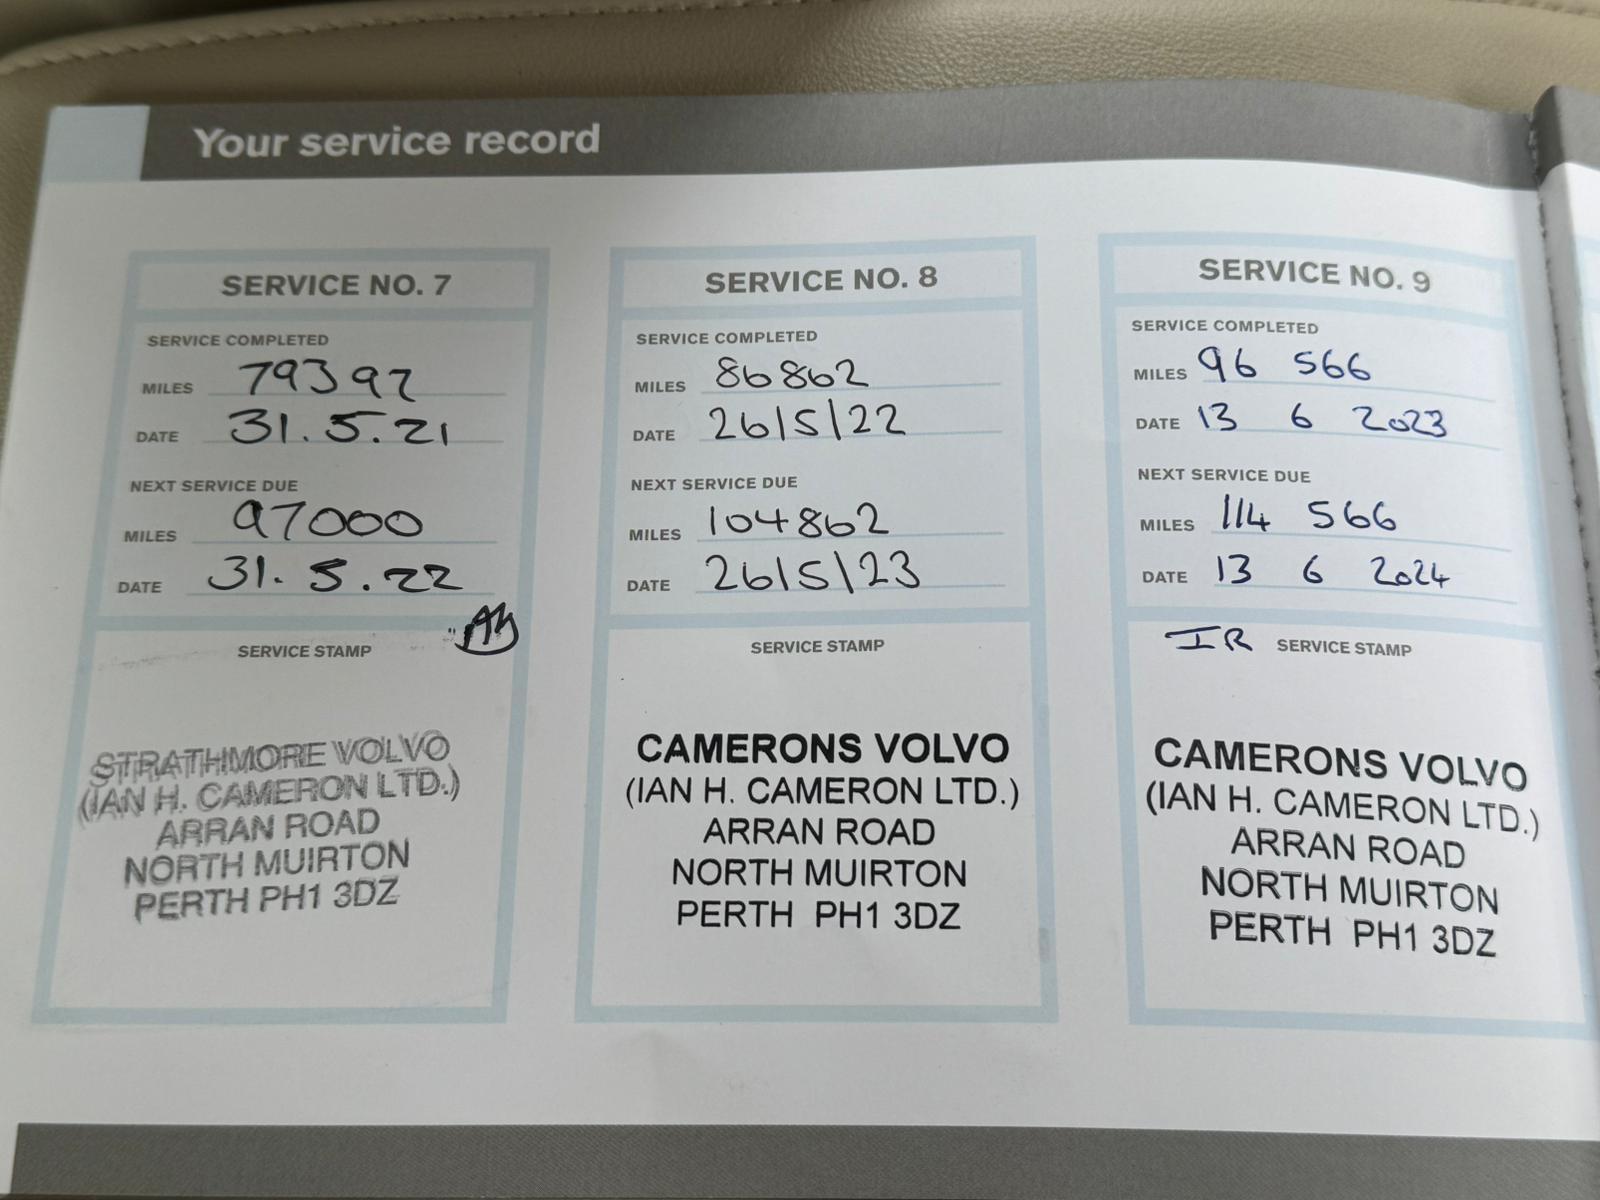 Your service record
SERVICE NO. 7
SERVICE COMPLETED
MILES 79397
DATE 31.5.21
NEXT SERVICE DUE
MILES 97000
DATE 31.5.22
SERVICE STAMP
STRATHMORE VOLVO
(IAN H. CAMERON LTD.)
ARRAN ROAD
NORTH MUIRTON
PERTH PH1 3DZ
SERVICE NO. 8
SERVICE COMPLETED
MILES 86862
DATE 26/5/22
NEXT SERVICE DUE
MILES 104862
DATE 26/5/23
SERVICE STAMP
CAMERONS VOLVO
(IAN H. CAMERON LTD.)
ARRAN ROAD
NORTH MUIRTON
PERTH PH1 3DZ
SERVICE NO. 9
SERVICE COMPLETED
MILES 96 566
DATE 13 6 2023
NEXT SERVICE DUE
MILES 114 566
DATE 13 6 2024
IR SERVICE STAMP
CAMERONS VOLVO
(IAN H. CAMERON LTD.)
ARRAN ROAD
NORTH MUIRTON
PERTH PH1 3DZ